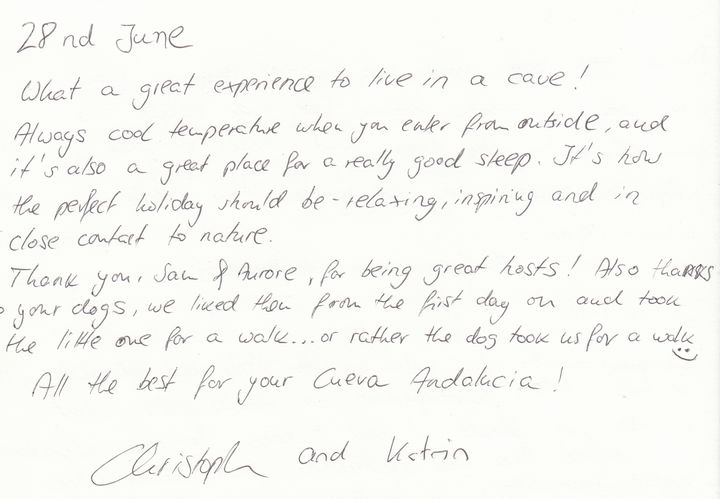 28nd June
What a great experience to live in a cave!
Always cool temperature when you enter from outside, and
it's also a great place for a really good sleep. It's how
the perfect holiday should be - relaxing, inspiring and in
close contact to nature.
Thank you, Sam & Aurore, for being great hosts! Also thanks
o your dogs, we liked them from the first day on and took
the little one for a walk... or rather the dog took us for a walk
All the best for your Cueva Andalucia!
Christoph and Katrin